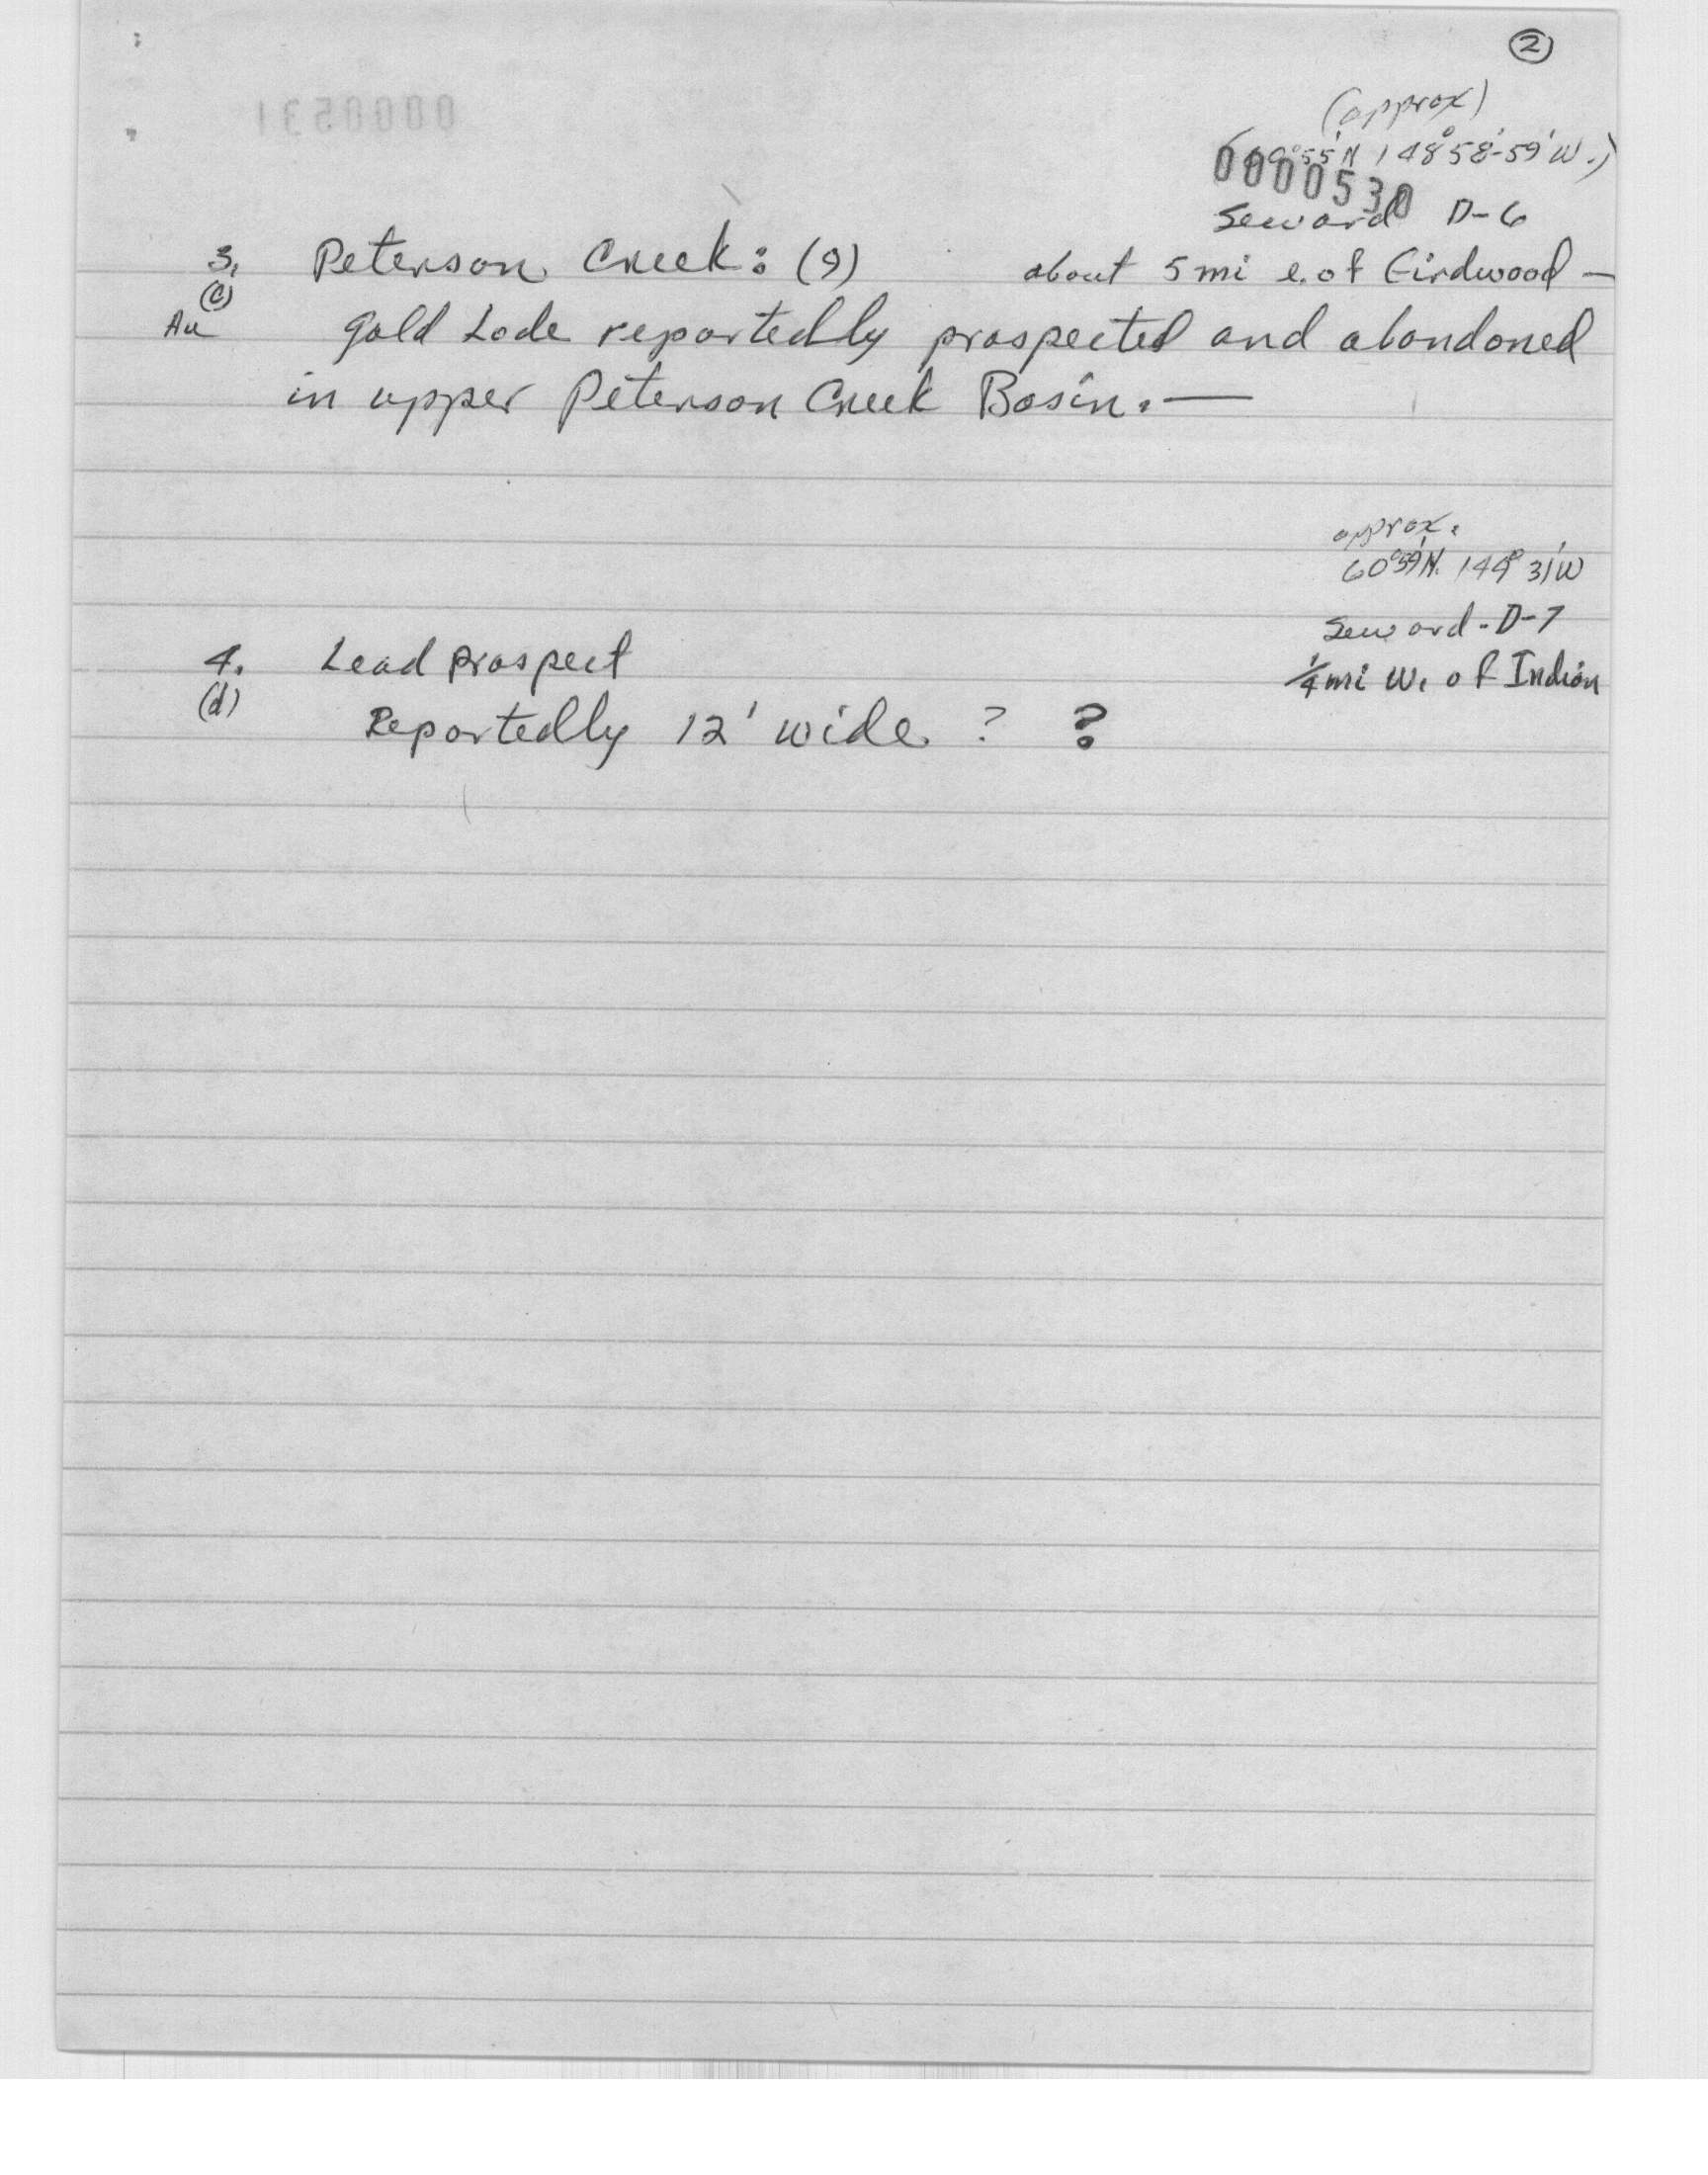 ②
(approx)
55'N 148° 58'-59' W.)
0000530
Seward D-6
3. Peterson Creek: (9) about 5 mi e. of Girdwood —
(c)
Au Gold Lode reportedly prospected and abandoned
in upper Peterson Creek Basin. —
approx.
60° 59' N. 149° 31' W
Seward - D-7
4. Lead prospect 1/4 mi W. of Indian
(d)
Reportedly 12' wide ? ?